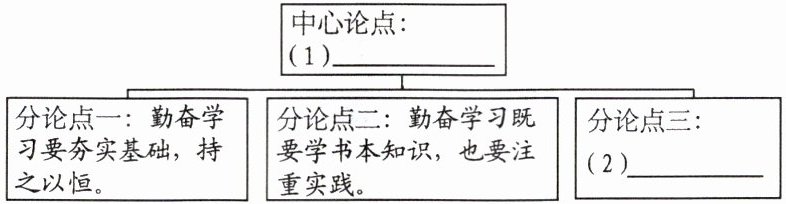 中心论点：
(1)____________
分论点一：勤奋学
习要夯实基础，持
之以恒。
分论点二：勤奋学习既
要学书本知识，也要注
重实践。
分论点三：
(2)____________